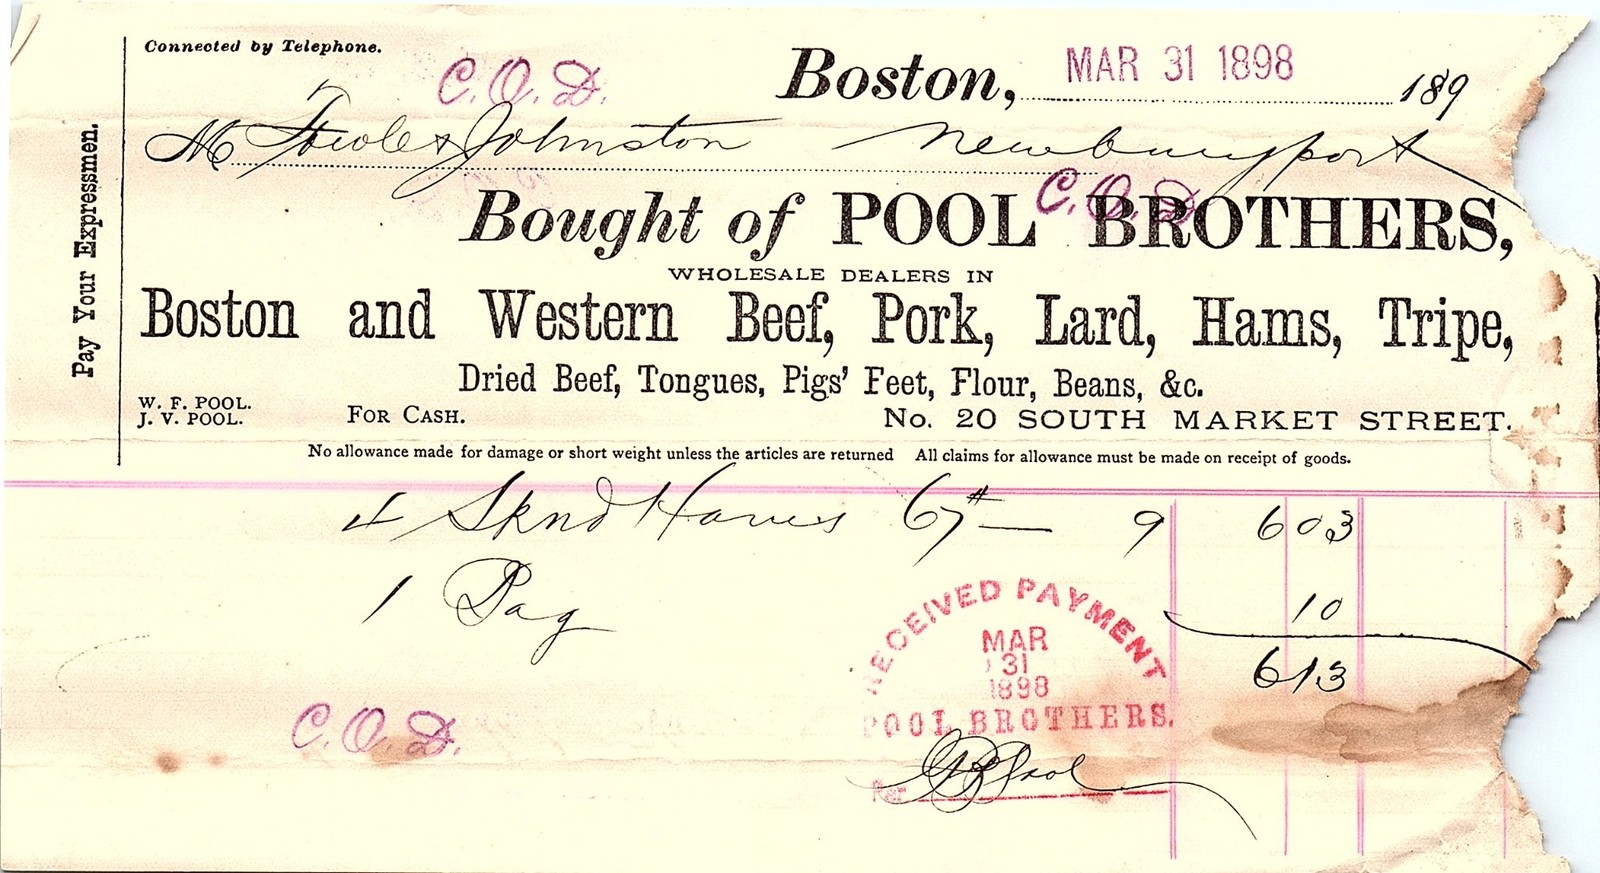 Connected by Telephone.
C.O.D.
Boston, MAR 31 1898 189
M Fowle & Johnston Newburyport
C.O.D.
Bought of POOL BROTHERS,
WHOLESALE DEALERS IN
Boston and Western Beef, Pork, Lard, Hams, Tripe,
Dried Beef, Tongues, Pigs' Feet, Flour, Beans, &c.
W. F. POOL.
J. V. POOL.
FOR CASH.
No. 20 SOUTH MARKET STREET.
Pay Your Expressmen.
No allowance made for damage or short weight unless the articles are returned All claims for allowance must be made on receipt of goods.
4 Sknd Hams 67# — 9 6 03
1 Bag 10
6 13
RECEIVED PAYMENT
MAR
31
1898
POOL BROTHERS.
Per Pool
C.O.D.